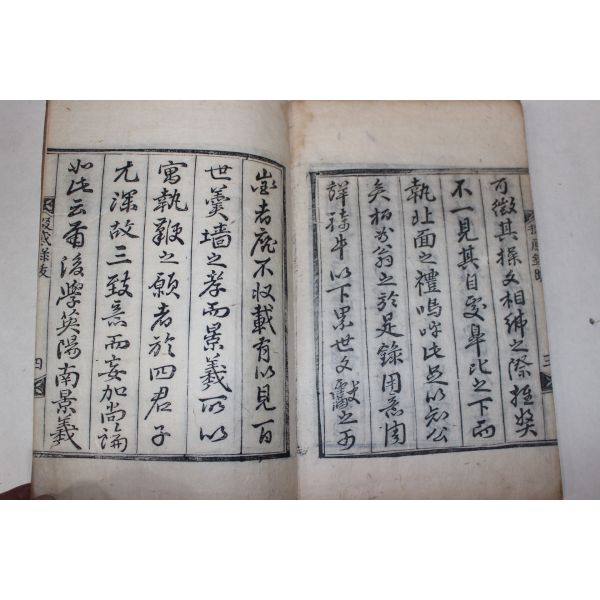 可徵其操文相紳之際推奬
不一見其自處皐比之下而
執北面之禮嗚呼此足以知公
矣栢翁之於是錄用意周
詳騎牛以下累世文獻之可
三
者靡不収載有以見百
世羹墻之孝而景羲所以
寓執鞭之願者於四君子
尤深故三致意而妄加尚論
如此云爾後學英陽南景羲
感錄跋
四